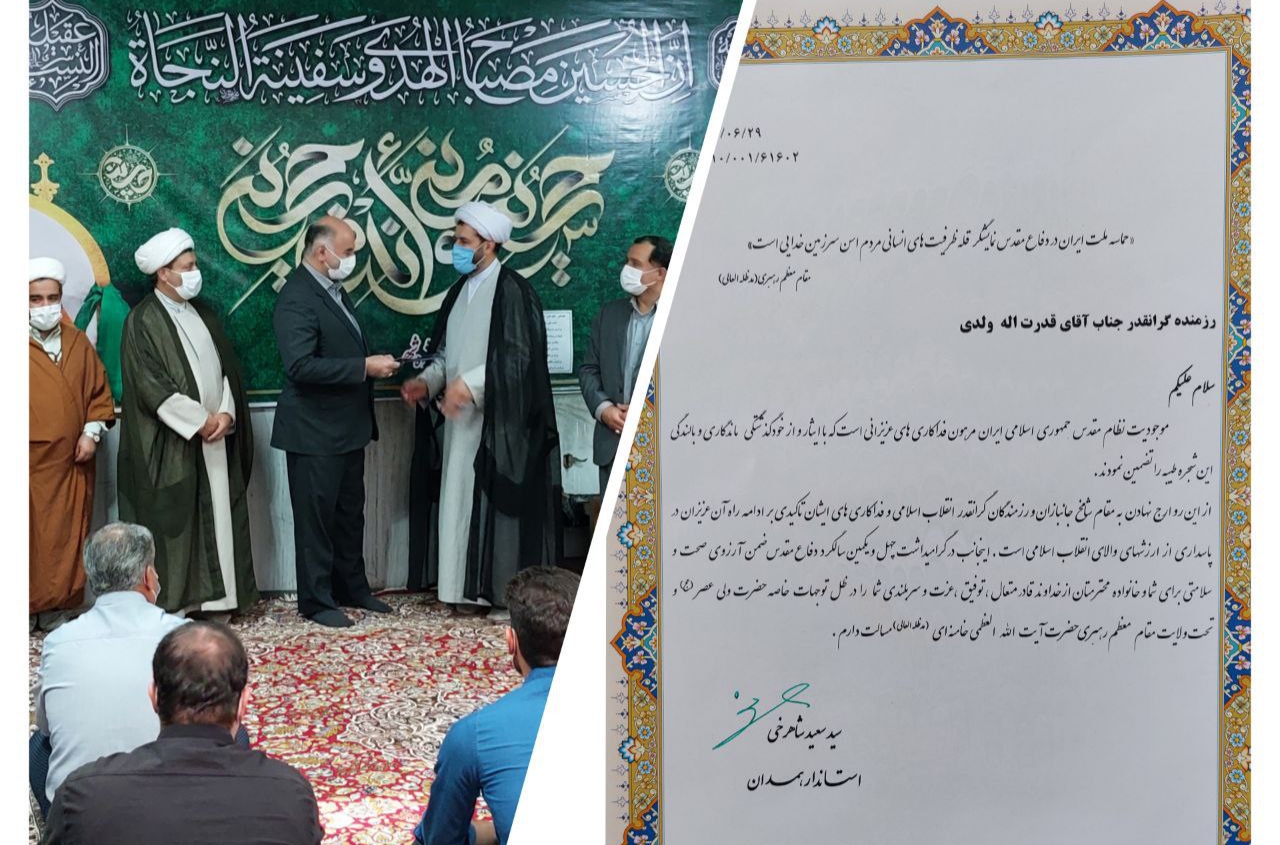 إِنَّ الْحُسَیْن مِصْبَاحُ الْهُدیٰ وَ سَفِینَةُ النَّجَاة
حسین منی و أنا من حسین
/۰۶/۲۹
۱۰/۰۰۱/۶۱۶۰۲
«حماسه ملت ایران در دفاع مقدس نمایشگر قله ظرفیت های انسانی مردم این سرزمین خدایی است»
مقام معظم رهبری (مدظله العالی)
رزمنده گرانقدر جناب آقای قدرت اله ولدی
سلام علیکم
موجودیت نظام مقدس جمهوری اسلامی ایران مرهون فداکاری های عزیزانی است که با ایثار و از خودگذشتگی ماندگاری و بالندگی
این شجره طیبه را تضمین نمودند.
از این رو ارج نهادن به مقام شامخ جانبازان و رزمندگان گرانقدر انقلاب اسلامی و فداکاری های ایشان تاکیدی بر ادامه راه آن عزیزان در
پاسداری از ارزشهای والای انقلاب اسلامی است . اینجانب در گرامیداشت چهل و یکمین سالگرد دفاع مقدس ضمن آرزوی صحت و
سلامتی برای شما و خانواده محترمتان از خداوند قادر متعال ، توفیق ، عزت و سربلندی شما را در ظل توجهات خاصه حضرت ولی عصر (عج) و
تحت ولایت مقام معظم رهبری حضرت آیت الله العظمی خامنه ای (مدظله العالی) مسالت دارم .
سید سعید شاهرخی
استاندار همدان